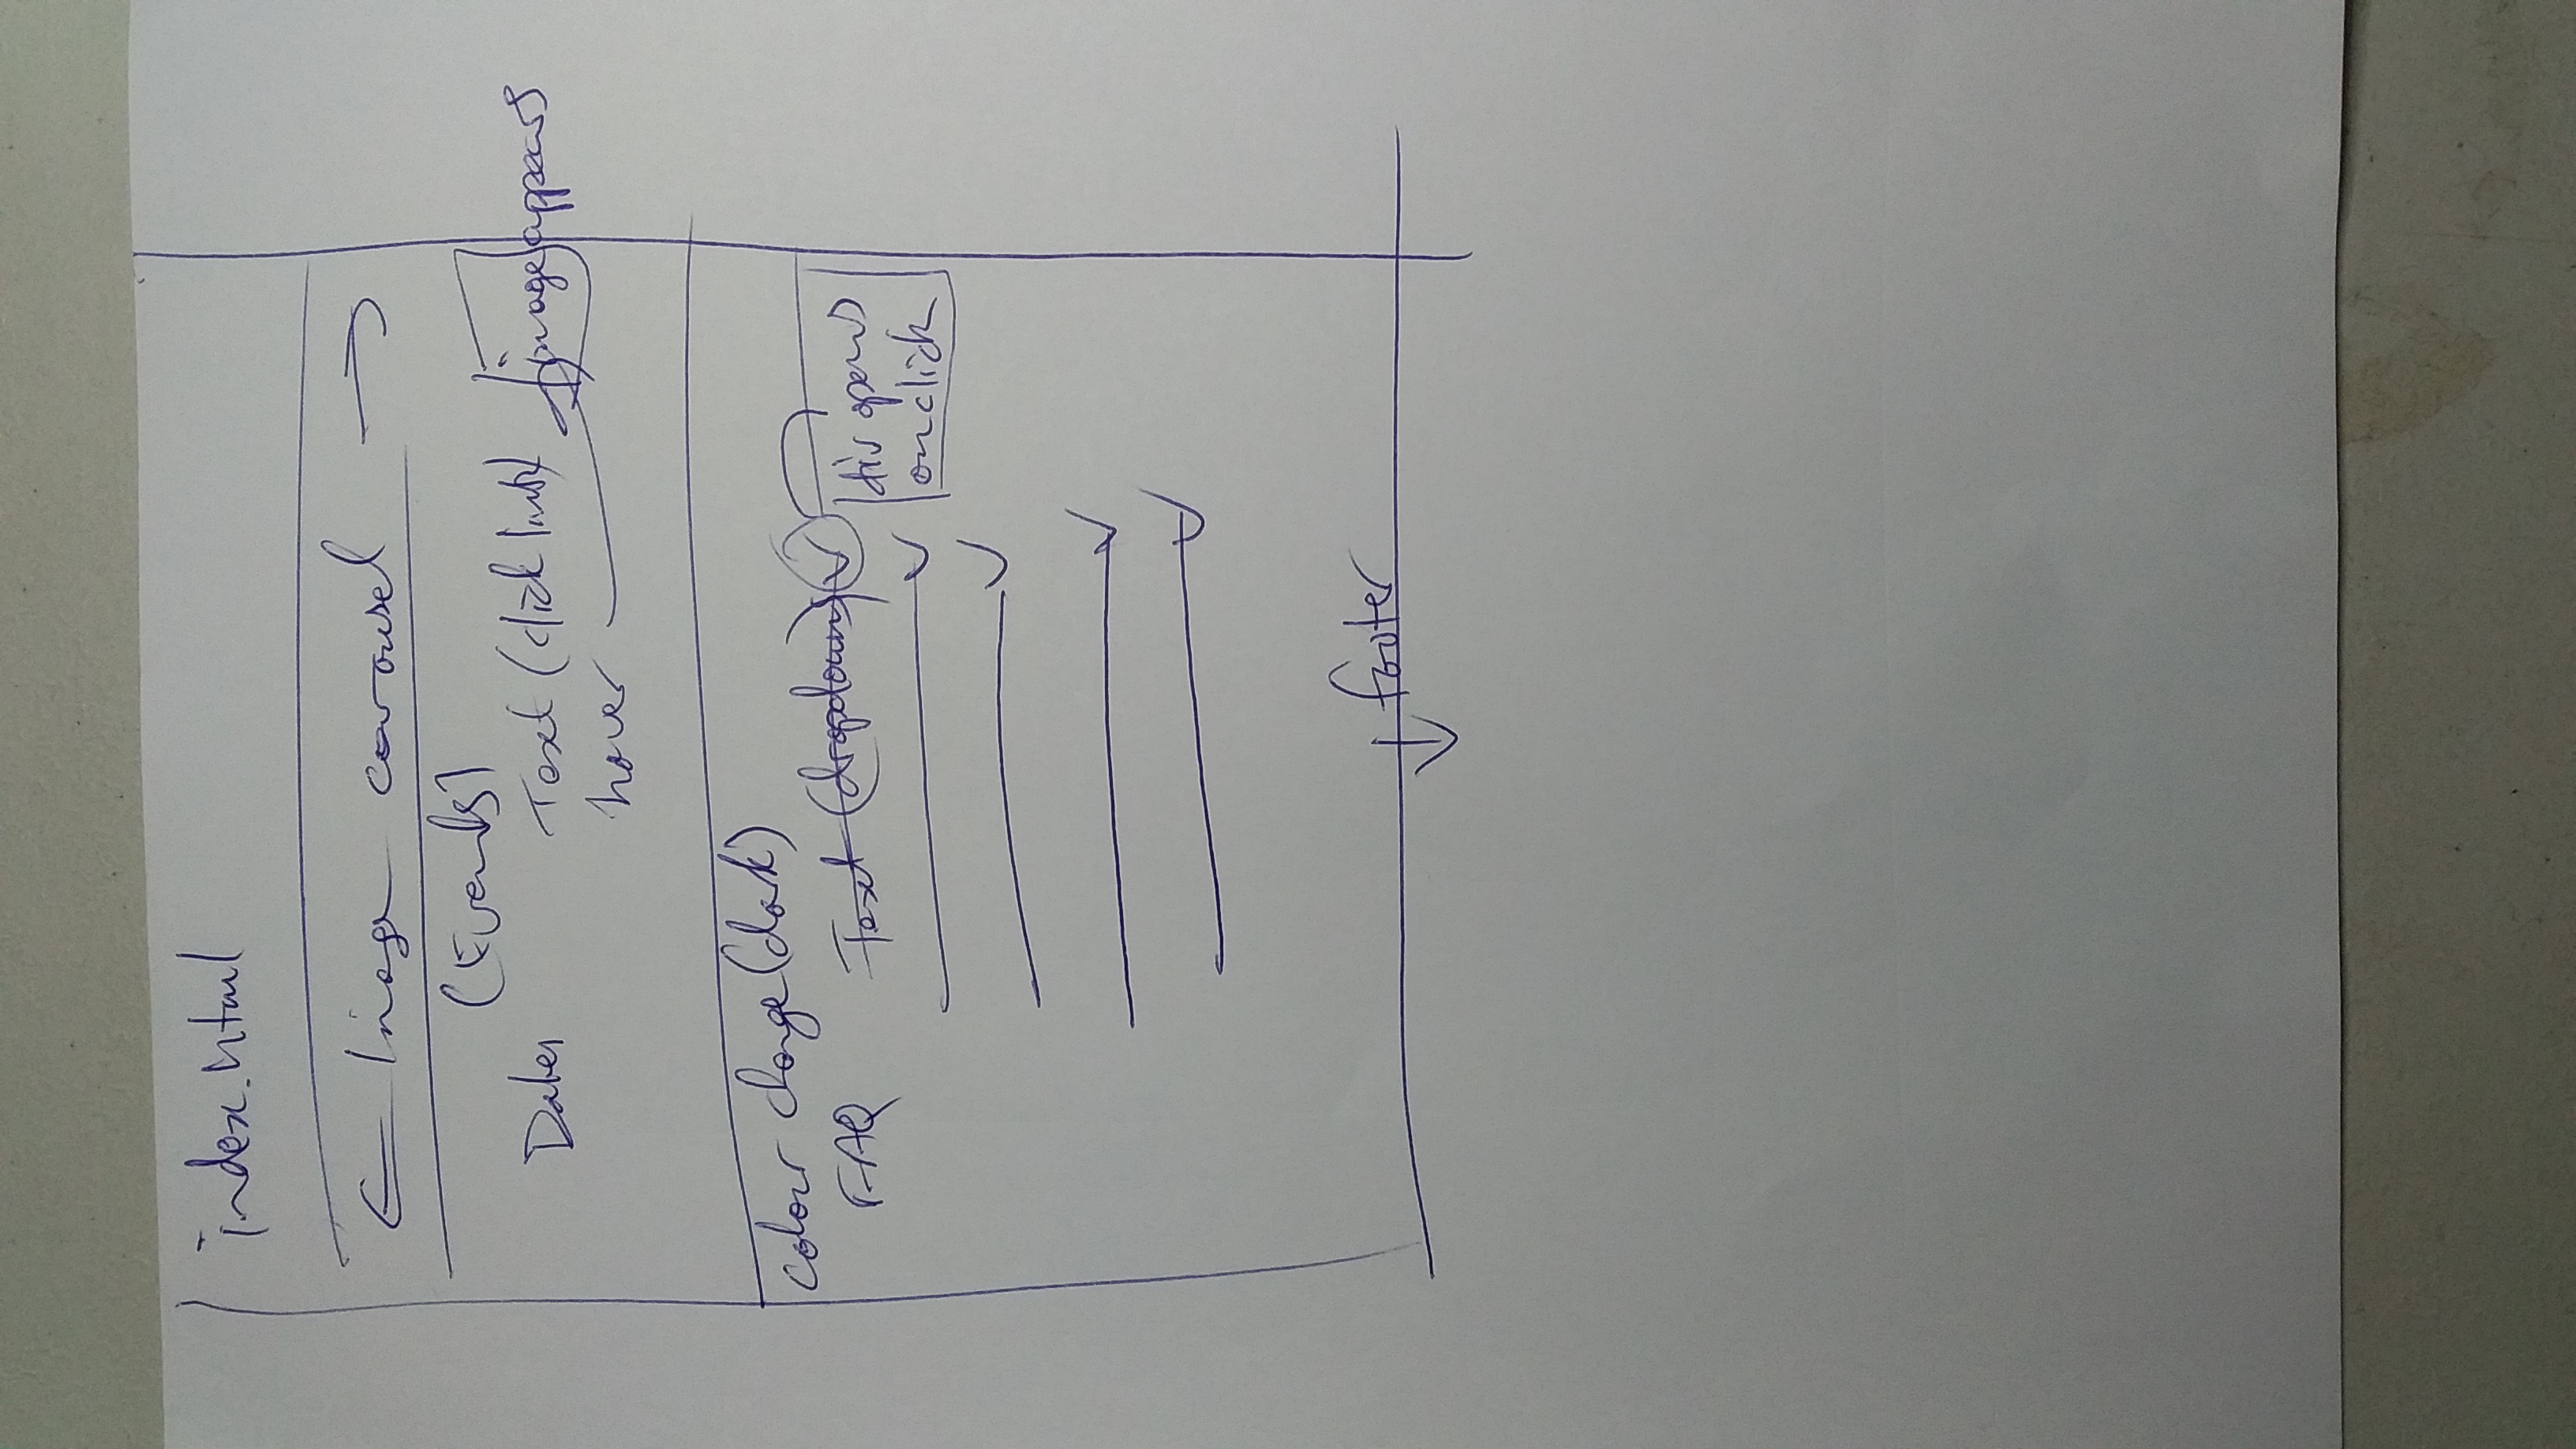 index.html
← Image carousel →
(Events)
Dates Text (click link) image appears
hover
colour change (dark)
FAQ Text (dropdown)
div opens
on click
footer